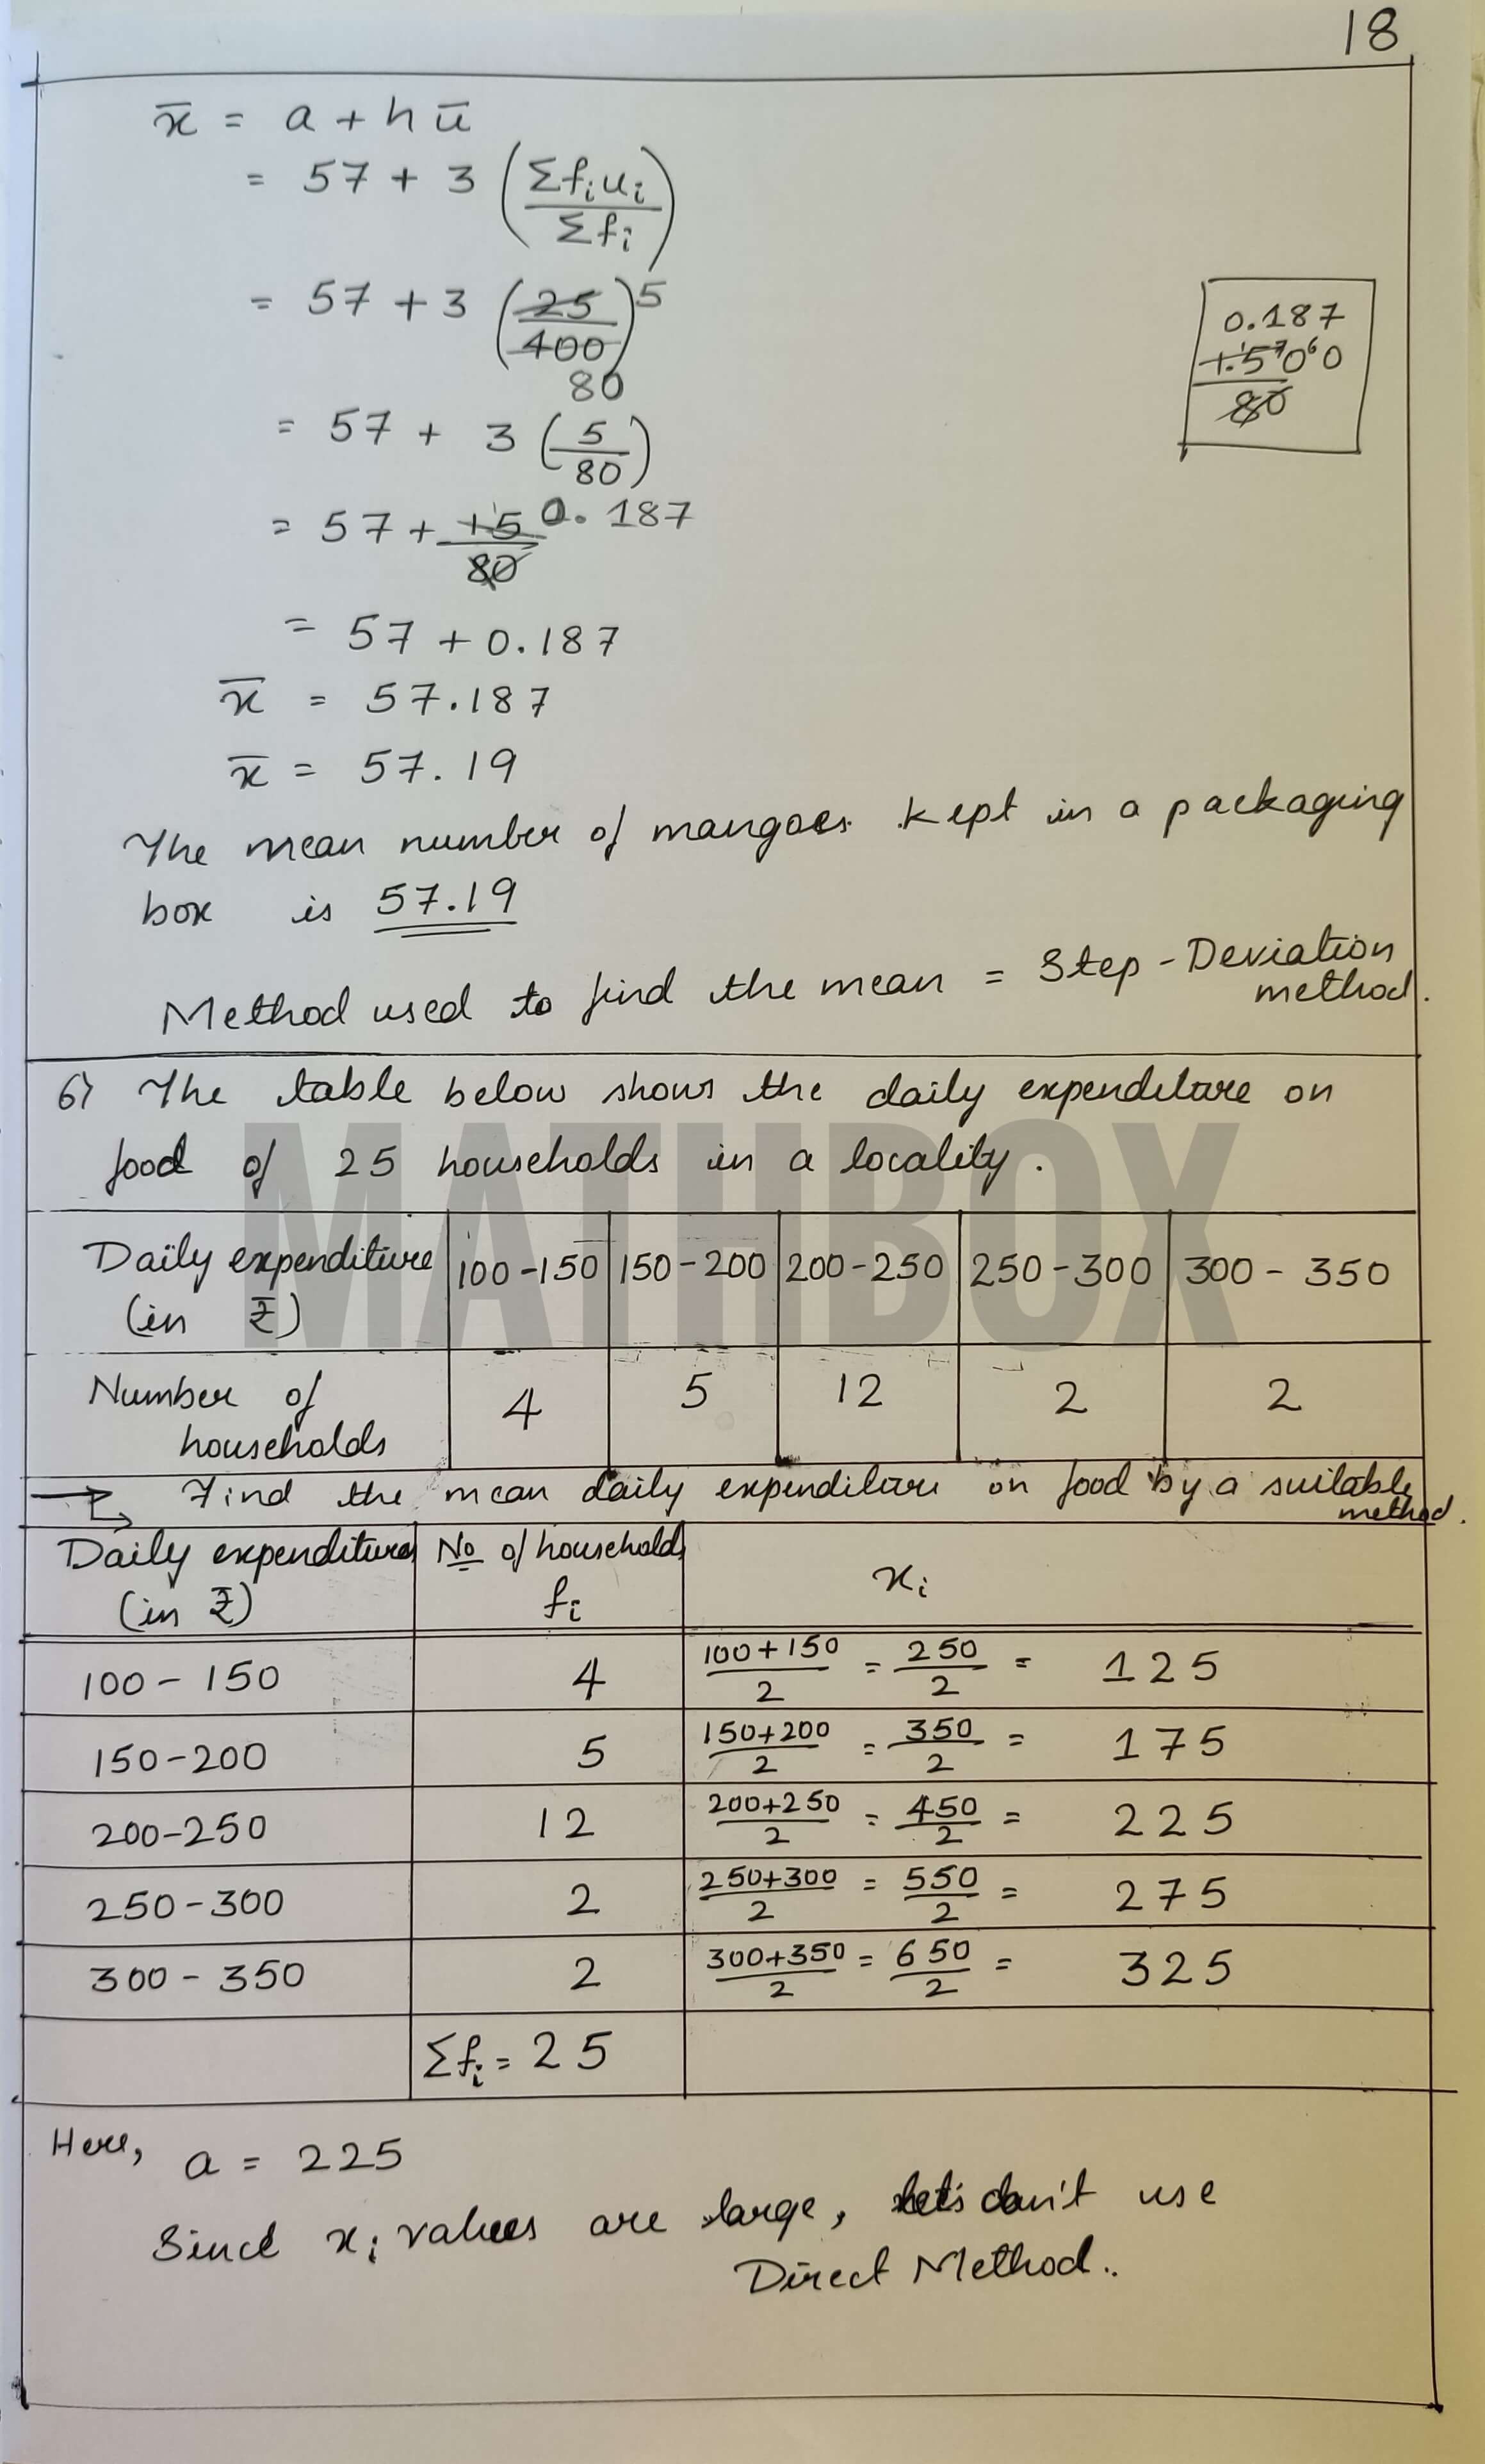 18
x̄ = a + h ū
= 57 + 3 (Σfᵢuᵢ / Σfᵢ)
= 57 + 3 (25/400) 5
80
= 57 + 3 (5/80)
= 57 + 15/80 0.187
= 57 + 0.187
x̄ = 57.187
x̄ = 57.19
0.187
1.5⁷0⁶0
80
The mean number of mangoes kept in a packaging
box is 57.19
Method used to find the mean = Step - Deviation
method.
6) The table below shows the daily expenditure on
food of 25 households in a locality.
MATHBOX
Daily expenditure (in ₹) 100-150 150-200 200-250 250-300 300-350
Number of households 4 5 12 2 2
→ Find the mean daily expenditure on food by a suitable
method.
Daily expenditure (in ₹) No of households fᵢ xᵢ
100-150 4 100+150/2 = 250/2 = 125
150-200 5 150+200/2 = 350/2 = 175
200-250 12 200+250/2 = 450/2 = 225
250-300 2 250+300/2 = 550/2 = 275
300-350 2 300+350/2 = 650/2 = 325
Σfᵢ = 25
Here, a = 225
Since xᵢ values are large, let's don't use
Direct Method..